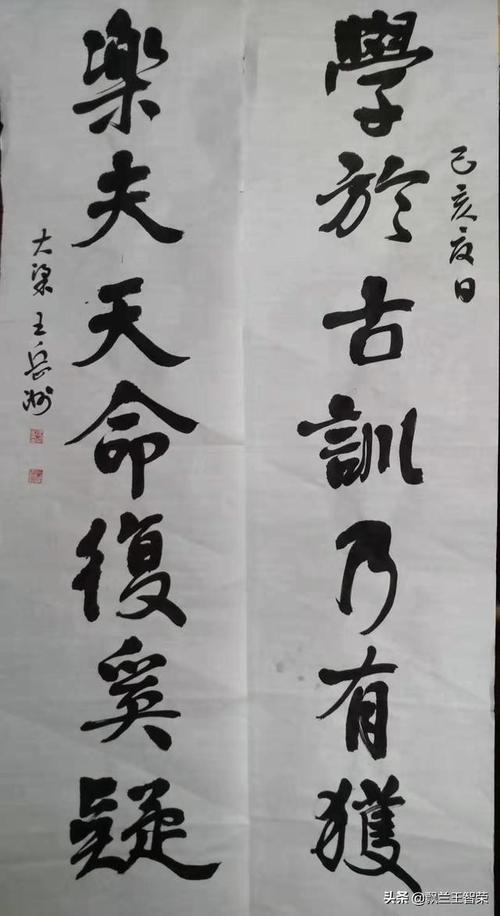 己亥夏日
學於古訓乃有獲
樂夫天命復奚疑
大梁王岳洲
头条 @飘兰王智荣